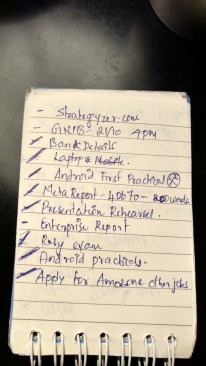 - Strategyzer.com
- 21/10 4pm
Bank Details
Laptop
Android First Practical
Meta Report - words
Presentation Rehearsel.
- Enterprise Report
Ruby exam
Android practicals.
Apply for Amazone other jobs